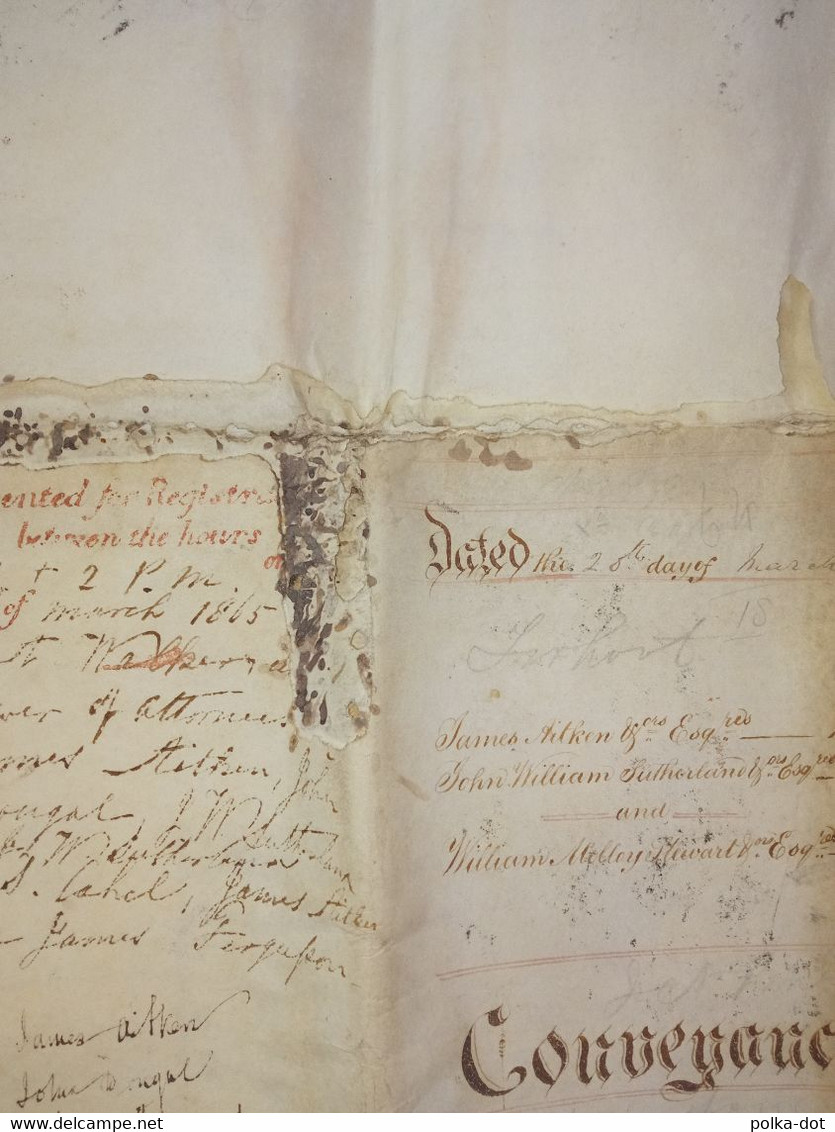 ented for Registra
between the hours
2 P. m
of march 1865
Walker
of attorneys
James Aitken, John
Dougal, J W Sutherland
W Sutherland
James Aitken
James Ferguson
James Aitken
John Dougal
Dated the 28th day of March
18
James Aitken & ors Esqres
John William Sutherland & ors Esqres
and
William McCloy Stewart & ors Esqres
Conveyanc
www.delcampe.net
polka-dot